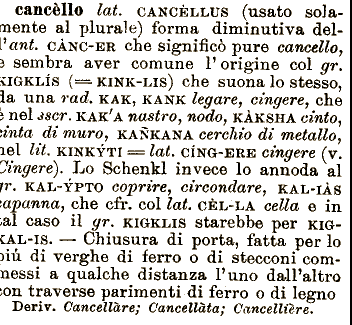 cancèllo lat. CANCÈLLUS (usato sola-
mente al plurale) forma diminutiva del-
l'ant. CÀNC-ER che significò pure cancello,
e sembra aver comune l'origine col gr.
KIGKLÍS (= KINK-LIS) che suona lo stesso,
da una rad. KAK, KANK legare, cingere, che
è nel sscr. KAK'A nastro, nodo, KÀKSHA cinto,
cinta di muro, KAÑKANA cerchio di metallo,
nel lit. KINKÝTI = lat. CÍNG-ERE cingere (v.
Cingere). Lo Schenkl invece lo annoda al
gr. KAL-ÝPTO coprire, circondare, KAL-IÀS
capanna, che cfr. col lat. CÈL-LA cella e in
tal caso il gr. KIGKLIS starebbe per KIG-
KAL-IS. — Chiusura di porta, fatta per lo
più di verghe di ferro o di stecconi com-
messi a qualche distanza l'uno dall'altro
con traverse parimenti di ferro o di legno
Deriv. Cancellàre; Cancellàta; Cancellière.